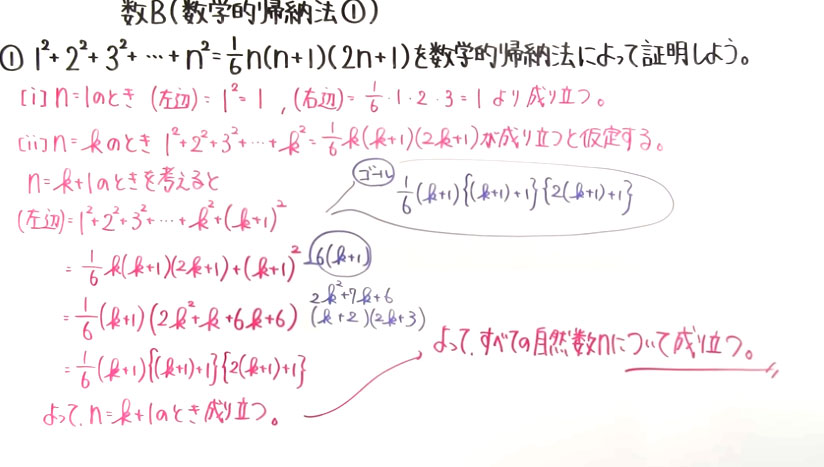 数B(数学的帰納法①)
① 1²+2²+3²+…+n²=1/6n(n+1)(2n+1)を数学的帰納法によって証明しよう。
[i] n=1のとき (左辺)=1²=1 , (右辺)=1/6・1・2・3=1 より成り立つ。
[ii] n=kのとき 1²+2²+3²+…+k²=1/6k(k+1)(2k+1)が成り立つと仮定する。
n=k+1のときを考えると
ゴール 1/6(k+1){(k+1)+1}{2(k+1)+1}
(左辺)=1²+2²+3²+…+k²+(k+1)²
=1/6k(k+1)(2k+1)+(k+1)² 6(k+1)
=1/6(k+1)(2k²+k+6k+6) 2k²+7k+6
(k+2)(2k+3)
=1/6(k+1){(k+1)+1}{2(k+1)+1}
よって、n=k+1のとき成り立つ。
よって、すべての自然数nについて成り立つ。